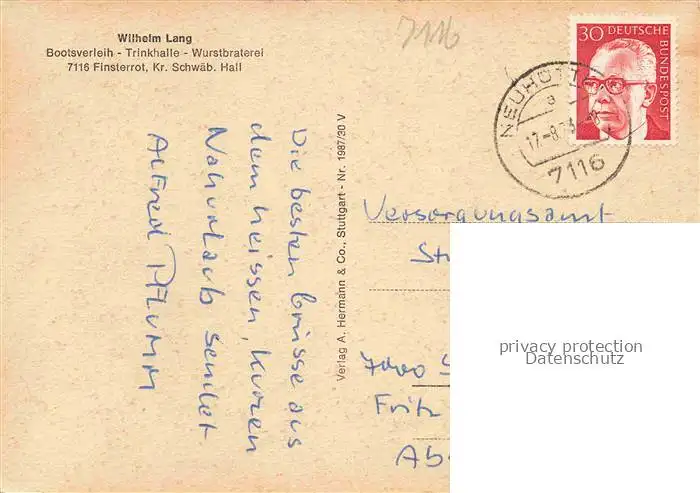 Wilhelm Lang
Bootsverleih - Trinkhalle - Wurstbraterei
7116 Finsterrot, Kr. Schwäb. Hall
7116
30 DEUTSCHE BUNDESPOST
NEUHÜTT
a
17.-8.
7116
Die besten Grüsse aus
dem heissen, kurzen
Nahurlaub sendet
Alfred Pflumm
Verlag A. Hermann & Co., Stuttgart - Nr. 1987/30 V
Versorgungsamt
St
7000 S
Fritz
Ab
privacy protection
Datenschutz